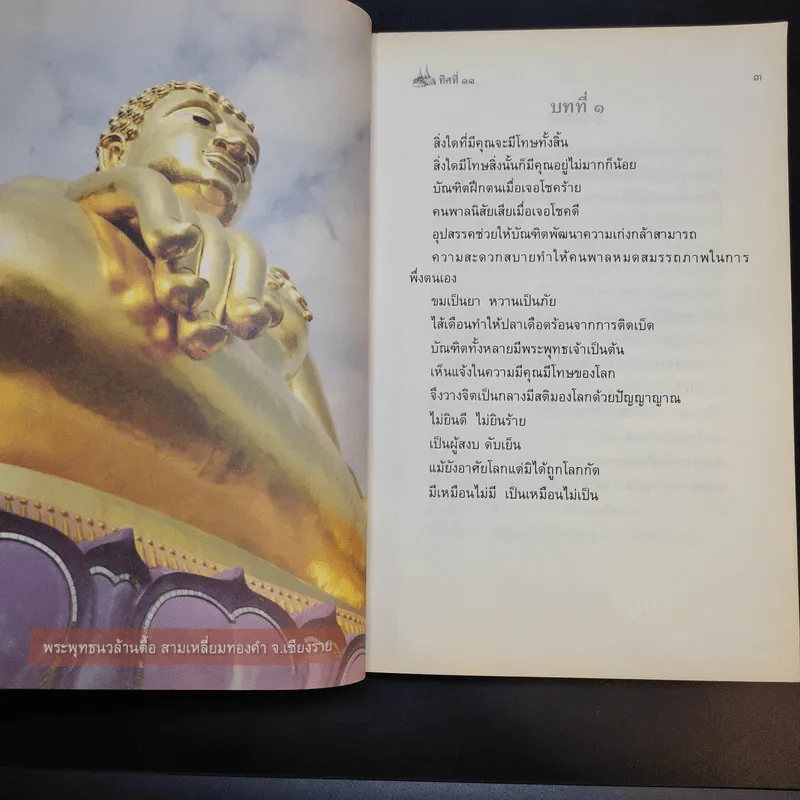 พระพุทธนวล้านตื้อ สามเหลี่ยมทองคำ จ.เชียงราย
ทิศที่ ๑๑
๓
บทที่ ๑
สิ่งใดที่มีคุณจะมีโทษทั้งสิ้น
สิ่งใดมีโทษสิ่งนั้นก็มีคุณอยู่ไม่มากก็น้อย
บัณฑิตฝึกตนเมื่อเจอโชคร้าย
คนพาลนิสัยเสียเมื่อเจอโชคดี
อุปสรรคช่วยให้บัณฑิตพัฒนาความเก่งกล้าสามารถ
ความสะดวกสบายทำให้คนพาลหมดสมรรถภาพในการ
พึ่งตนเอง
ขมเป็นยา หวานเป็นภัย
ไส้เดือนทำให้ปลาเดือดร้อนจากการติดเบ็ด
บัณฑิตทั้งหลายมีพระพุทธเจ้าเป็นต้น
เห็นแจ้งในความมีคุณมีโทษของโลก
จึงวางจิตเป็นกลางมีสติมองโลกด้วยปัญญาญาณ
ไม่ยินดี ไม่ยินร้าย
เป็นผู้สงบ ดับเย็น
แม้ยังอาศัยโลกแต่มิได้ถูกโลกกัด
มีเหมือนไม่มี เป็นเหมือนไม่เป็น